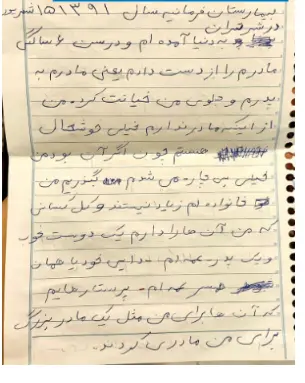 بیمارستان فرمانیه سال ۱۳۹۱ ۱۵ شهریور
در شهر تهران
به دنیا آمده ام و درست ۶ سالگی
مادرم را از دست دادم یعنی مادرم به
پدرم و جلوی من خیانت کرد. من
از اینکه مادر ندارم خیلی خوشحال
هستم چون اگر آن بود من
خیلی بی چاره می شدم بگذریم من
خانواده ام زیاد نیستند و کل کسانی
که من آن ها را دارم یک دوست خوب
و یک پدر و همان
پرستار هایم
که آن ها برای من مثل یک مادر بزرگ
برای من مادری کردند.